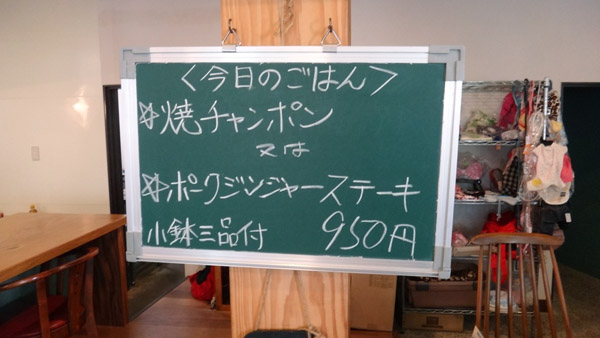 ＜今日のごはん＞
☆焼チャンポン
又は
☆ポークジンジャーステーキ
小鉢三品付 950円